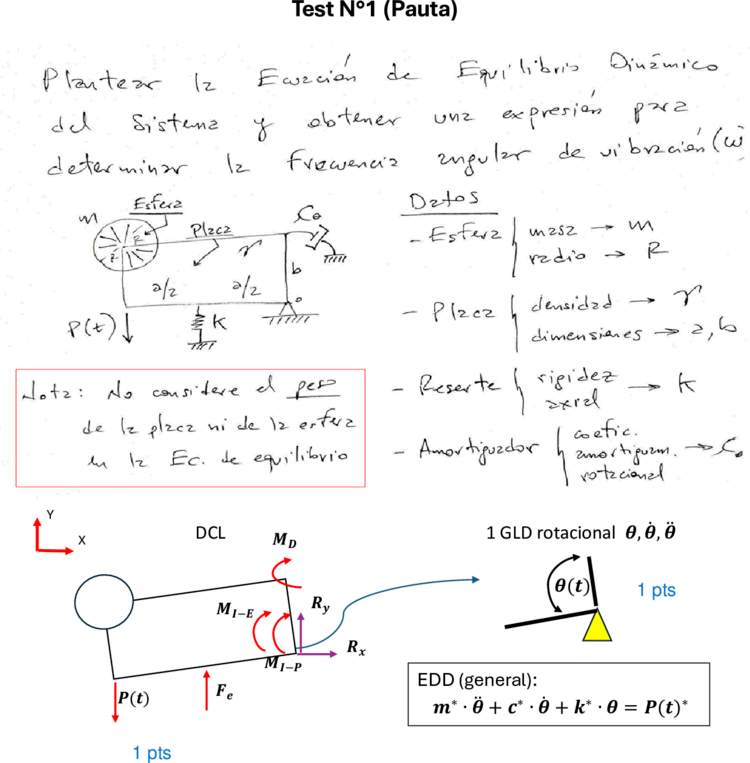 Test Nº1 (Pauta)
Plantear la Ecuación de Equilibrio Dinámico
del Sistema y obtener una expresión para
determinar la frecuencia angular de vibración (ω)
Esfera
m
Placa
Co
R
γ
a/2 a/2
b
o
P(t)
K
Datos
- Esfera
masa → m
radio → R
- Placa
densidad → γ
dimensiones → a, b
- Resorte
rigidez axial → K
- Amortiguador
coefic. amortiguam. rotacional → Co
Nota: No considere el peso
de la placa ni de la esfera
en la Ec. de equilibrio
Y
X
DCL
M_D
M_{I-E}
R_y
R_x
M_{I-P}
P(t)
F_e
1 pts
1 GLD rotacional θ, θ̇, θ̈
θ(t)
1 pts
EDD (general):
m* · θ̈ + c* · θ̇ + k* · θ = P(t)*